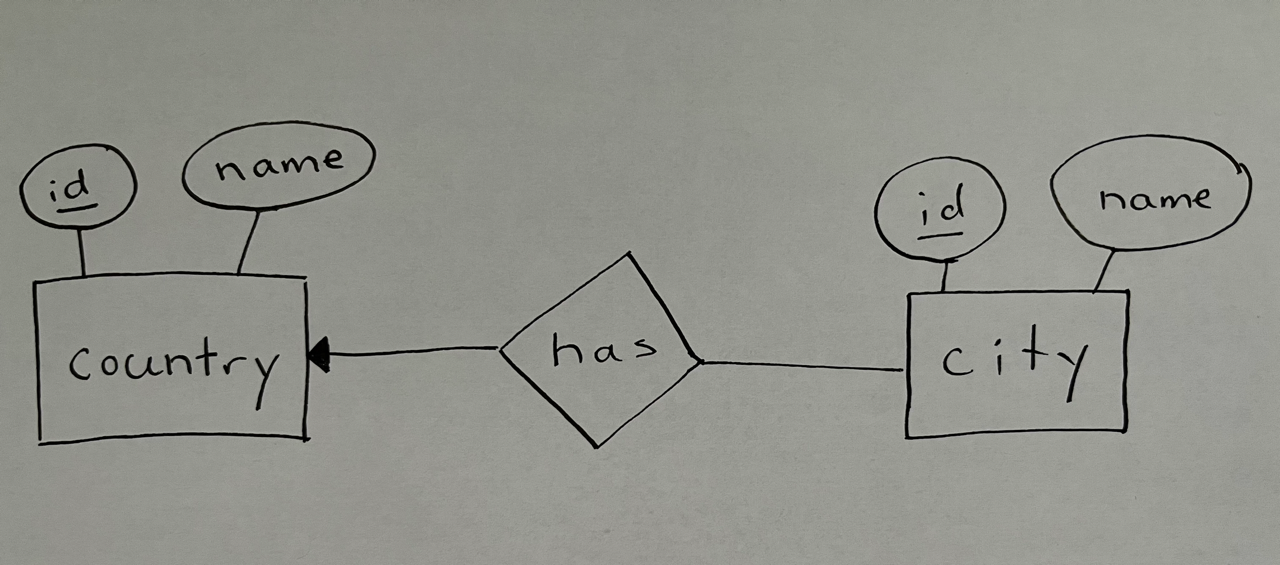 id
name
country
has
id
name
city